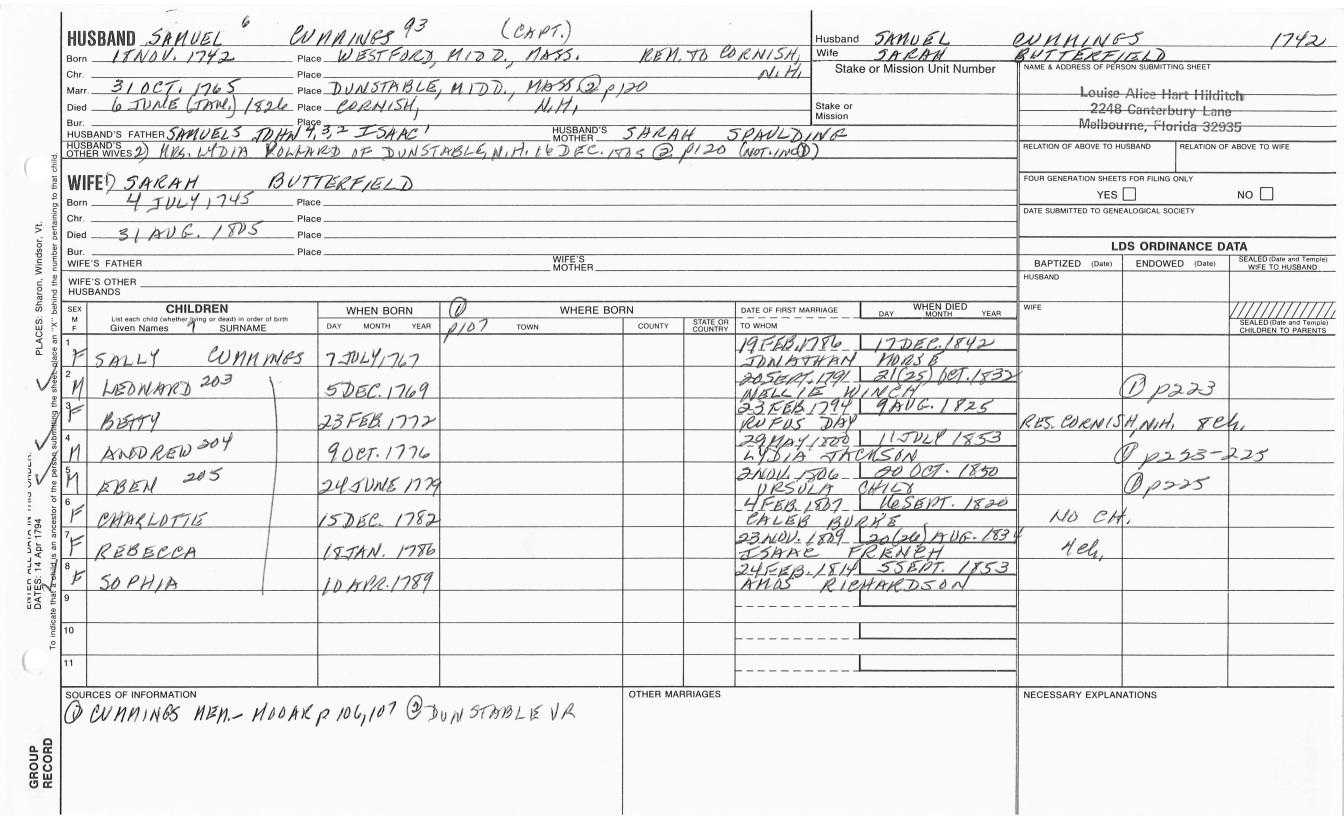 HUSBAND SAMUEL 6 CUMMINGS 93 (CAPT.)
Born 18 NOV. 1742 Place WESTFORD, MIDD., MASS. REM. TO CORNISH,
Chr. Place N.H.
Marr. 31 OCT. 1765 Place DUNSTABLE, MIDD., MASS ② p120
Died 6 JUNE (JAN.) 1826 Place CORNISH, N.H.
Bur. Place
HUSBAND'S FATHER SAMUEL 5 JOHN 4,3,2 ISAAC 1 HUSBAND'S MOTHER SARAH SPAULDING
HUSBAND'S OTHER WIVES 2) MRS. LYDIA POLLARD OF DUNSTABLE, N.H. 16 DEC. 1805 ② p120 (NOT IN ①)
Husband SAMUEL CUMMINGS 1742
Wife SARAH BUTTERFIELD
Stake or Mission Unit Number
Stake or Mission
NAME & ADDRESS OF PERSON SUBMITTING SHEET
Louise Alice Hart Hilditch
2248 Canterbury Lane
Melbourne, Florida 32935
RELATION OF ABOVE TO HUSBAND RELATION OF ABOVE TO WIFE
FOUR GENERATION SHEETS FOR FILING ONLY
YES NO
DATE SUBMITTED TO GENEALOGICAL SOCIETY
WIFE 1) SARAH BUTTERFIELD
Born 4 JULY 1745 Place
Chr. Place
Died 31 AUG. 1805 Place
Bur. Place
WIFE'S FATHER WIFE'S MOTHER
WIFE'S OTHER HUSBANDS
LDS ORDINANCE DATA
BAPTIZED (Date) ENDOWED (Date) SEALED (Date and Temple) WIFE TO HUSBAND
HUSBAND
WIFE
SEALED (Date and Temple) CHILDREN TO PARENTS
SEX M F CHILDREN WHEN BORN ① WHERE BORN DATE OF FIRST MARRIAGE WHEN DIED
List each child (whether living or dead) in order of birth
Given Names 7 SURNAME DAY MONTH YEAR p107 TOWN COUNTY STATE OR COUNTRY TO WHOM DAY MONTH YEAR
1 F SALLY CUMMINGS 7 JULY 1767 19 FEB. 1786 17 DEC. 1842
JONATHAN MORSE
2 M LEONARD 203 5 DEC. 1769 20 SEPT. 1791 21(25) OCT. 1832 ① p223
NELLIE WINCH
3 F BETTY 23 FEB. 1772 23 FEB. 1794 9 AUG. 1825 RES. CORNISH, N.H. 8 ch.
RUFUS DAY
4 M ANDREW 204 9 OCT. 1776 29 MAY 1800 11 JULY 1853 ① p223-225
LYDIA JACKSON
5 M EBEN 205 24 JUNE 1779 2 NOV. 1806 20 OCT. 1850 ① p225
URSULA CHILD
6 F CHARLOTTE 15 DEC. 1782 4 FEB. 1807 16 SEPT. 1820 NO CH.
CALEB BURKE
7 F REBECCA 18 JAN. 1786 23 NOV. 1809 20(26) AUG. 1834 4 ch.
ISAAC FRENCH
8 F SOPHIA 10 APR. 1789 24 FEB. 1814 5 SEPT. 1853
AMOS RICHARDSON
9
10
11
SOURCES OF INFORMATION
① CUMMINGS MEM. - MOOAR p 106, 107 ② DUNSTABLE VR
OTHER MARRIAGES
NECESSARY EXPLANATIONS
ENTER ALL DATA IN THIS ORDER:
DATES: 14 Apr 1794 PLACES: Sharon, Windsor, Vt.
To indicate that a child is an ancestor of the person submitting the sheet, place an "X" behind the number pertaining to that child.
GROUP RECORD